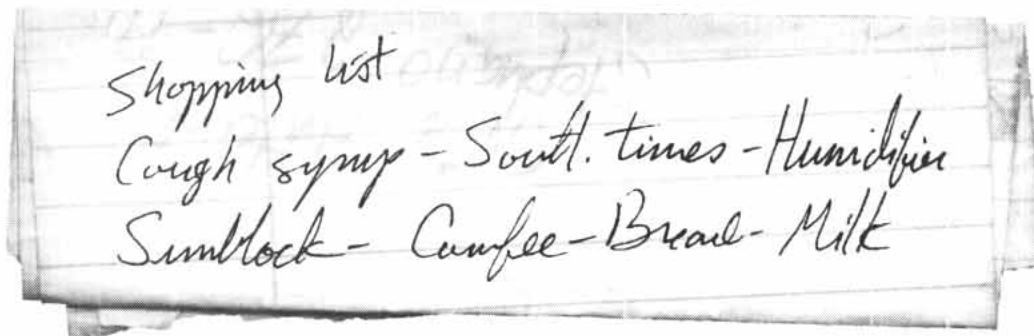 Shopping list
Cough syrup - South. times - Humidifier
Sunblock - Coffee - Bread - Milk